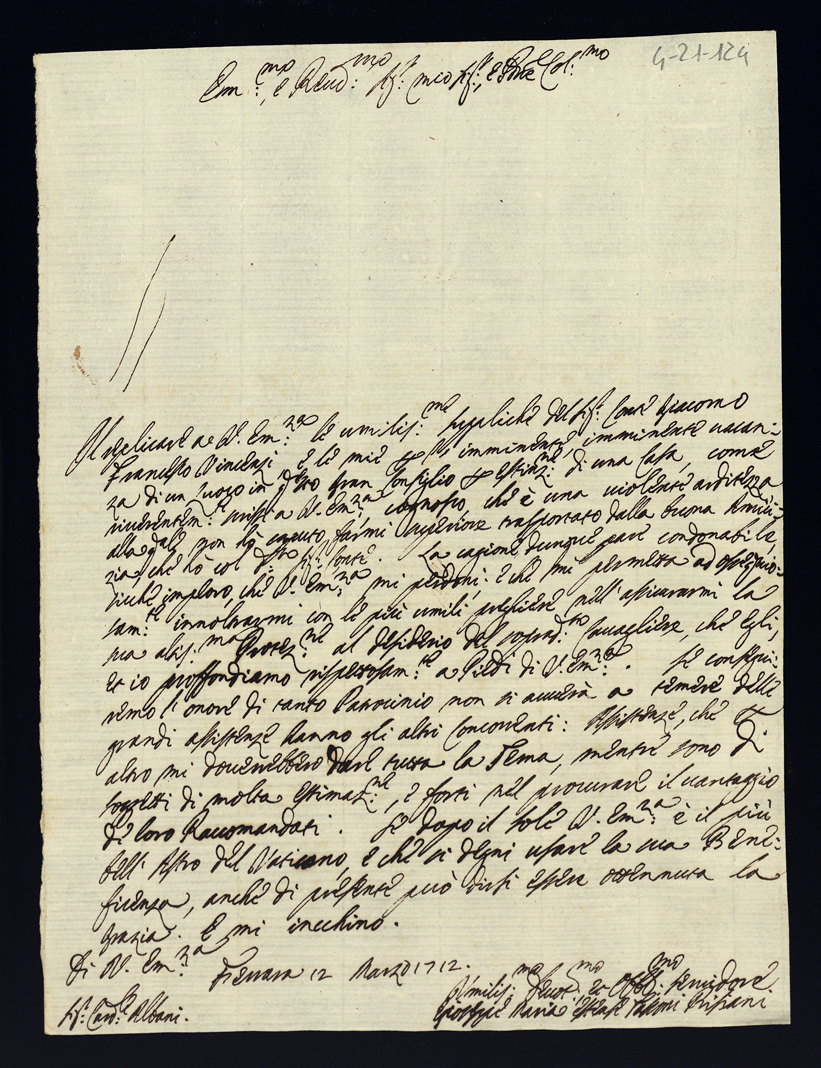 4-21-124
Em:mo, e Reud:mo Sig.r mio Sig.r, e Prne Col:mo
Il replicare a V. Em:za le umilis:me suppliche del Sig: Conte Giacomo
Francesco Vincenzi e le mie per l' imminente, imminente vacan-
za di un Luogo in q'sto Gran Consiglio per estinz:ne di una Casa, come
riverentem:te a V. Em:za cognosco, che è una violente arditezza
alla q'ale non hò saputo farmi superiore trasportato dalla buona Amici-
zia, che ho col d:sto Sig: Conte. La cagione dunque pare condonabile
sicche imploro, che V. Em:za mi perdoni, e che mi permetta ad ossequio-
sam:te innoltrarmi con le più umili preghiere nell' assicurarmi la
sua altis:ma Protez:ne al desiderio del soprad:to Cavagliere, che egli,
et io proffondiamo rispettosam:te a Piedi di V. Em:za. Se consegui-
remo l' onore di tanto Patrocinio non si avverà a temere delle
grandi assistenze hanno gli altri Concorrenti: Assistenze, che per
altro mi doverebbero dare tutta la Tema, mentre sono di
soggetti di molta estimaz:ne, e forti nel procurare il vantaggio
de' loro Raccomandati. Se dopo il sole V. Em:za è il più
bell' Astro del Vaticano, e che si degni usare la sua Bene-
ficenza, anche di presente può dirsi essere ottennuta la
grazia. E mi inchino.
Di V. Em:za Ferrara 12 Marzo 1712.
Umilis:mo Devot:mo et Obbl:mo servidore
Sig: Card:le Albani.
Giuseppe Maria Estense Tassoni